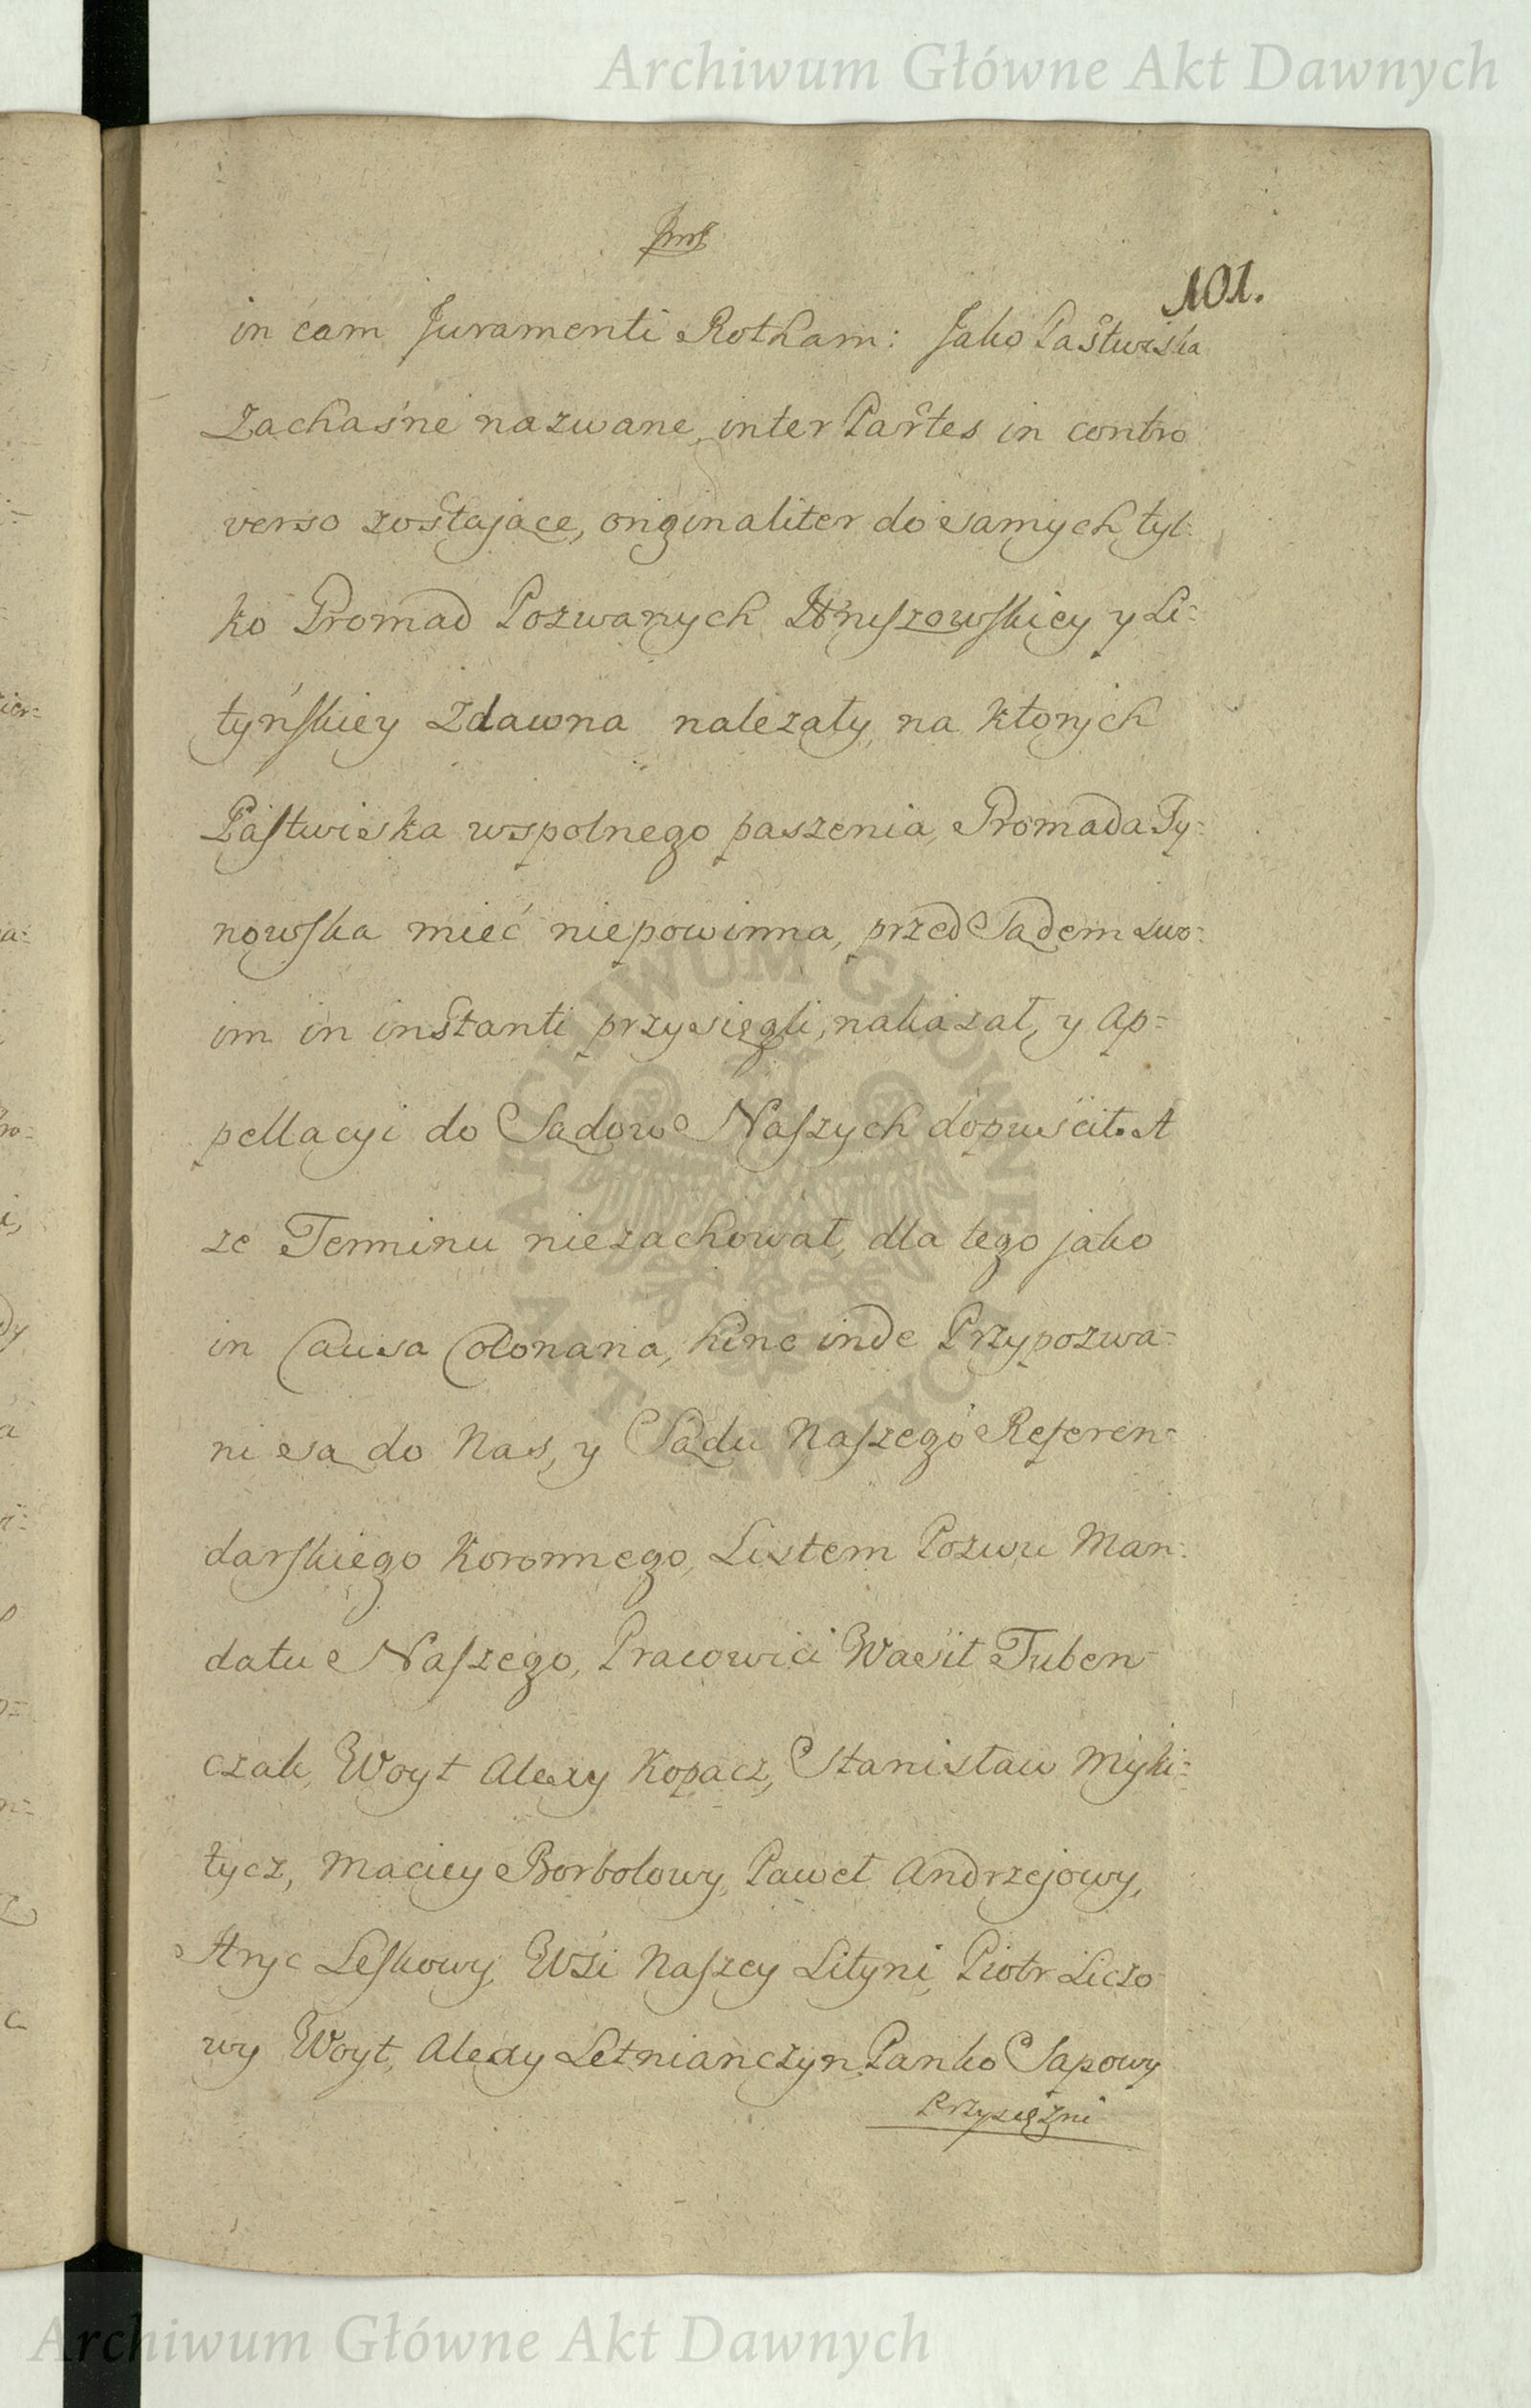 Archiwum Główne Akt Dawnych
101.
in eam Juramenti Rotham: Jako Pastwiska
Zachaśne nazwane, inter Partes in contro
verso zostaiące, originaliter do samych tyl:
ko Gromad Pozwanych Hruszowskiey y Li:
tyńskiey Zdawna należały, na ktorych
Pastwiska wspolnego paszenia, Gromada Ty:
nowska mieć niepowinna, przed Sądem swo:
im in instanti przysięgli, nakazał, y Ap=
pellacyi do Sądow Naszych dopuścił. A
ze Terminu niezachował, dla tego jako
in Causa Colonaria, hinc inde Przypozwa=
ni są do Nas, y Sądu Naszego Referen=
darskiego Koronnego, Listem Pozwu Man:
datu Naszego, Pracowici Wasil Tuben=
czak, Woyt Alexy Kopacz, Stanisław Myki=
tycz, Maciey Borbolowy, Paweł Andrzejowy,
Hryc Leskowy, Wsi Naszey Lityni, Piotr Liczo
wy Woyt, Alexy Letnianczyn, Panko Sapowy
Przysiężni
ARCHIWUM GŁÓWNE AKT DAWNYCH
Archiwum Główne Akt Dawnych